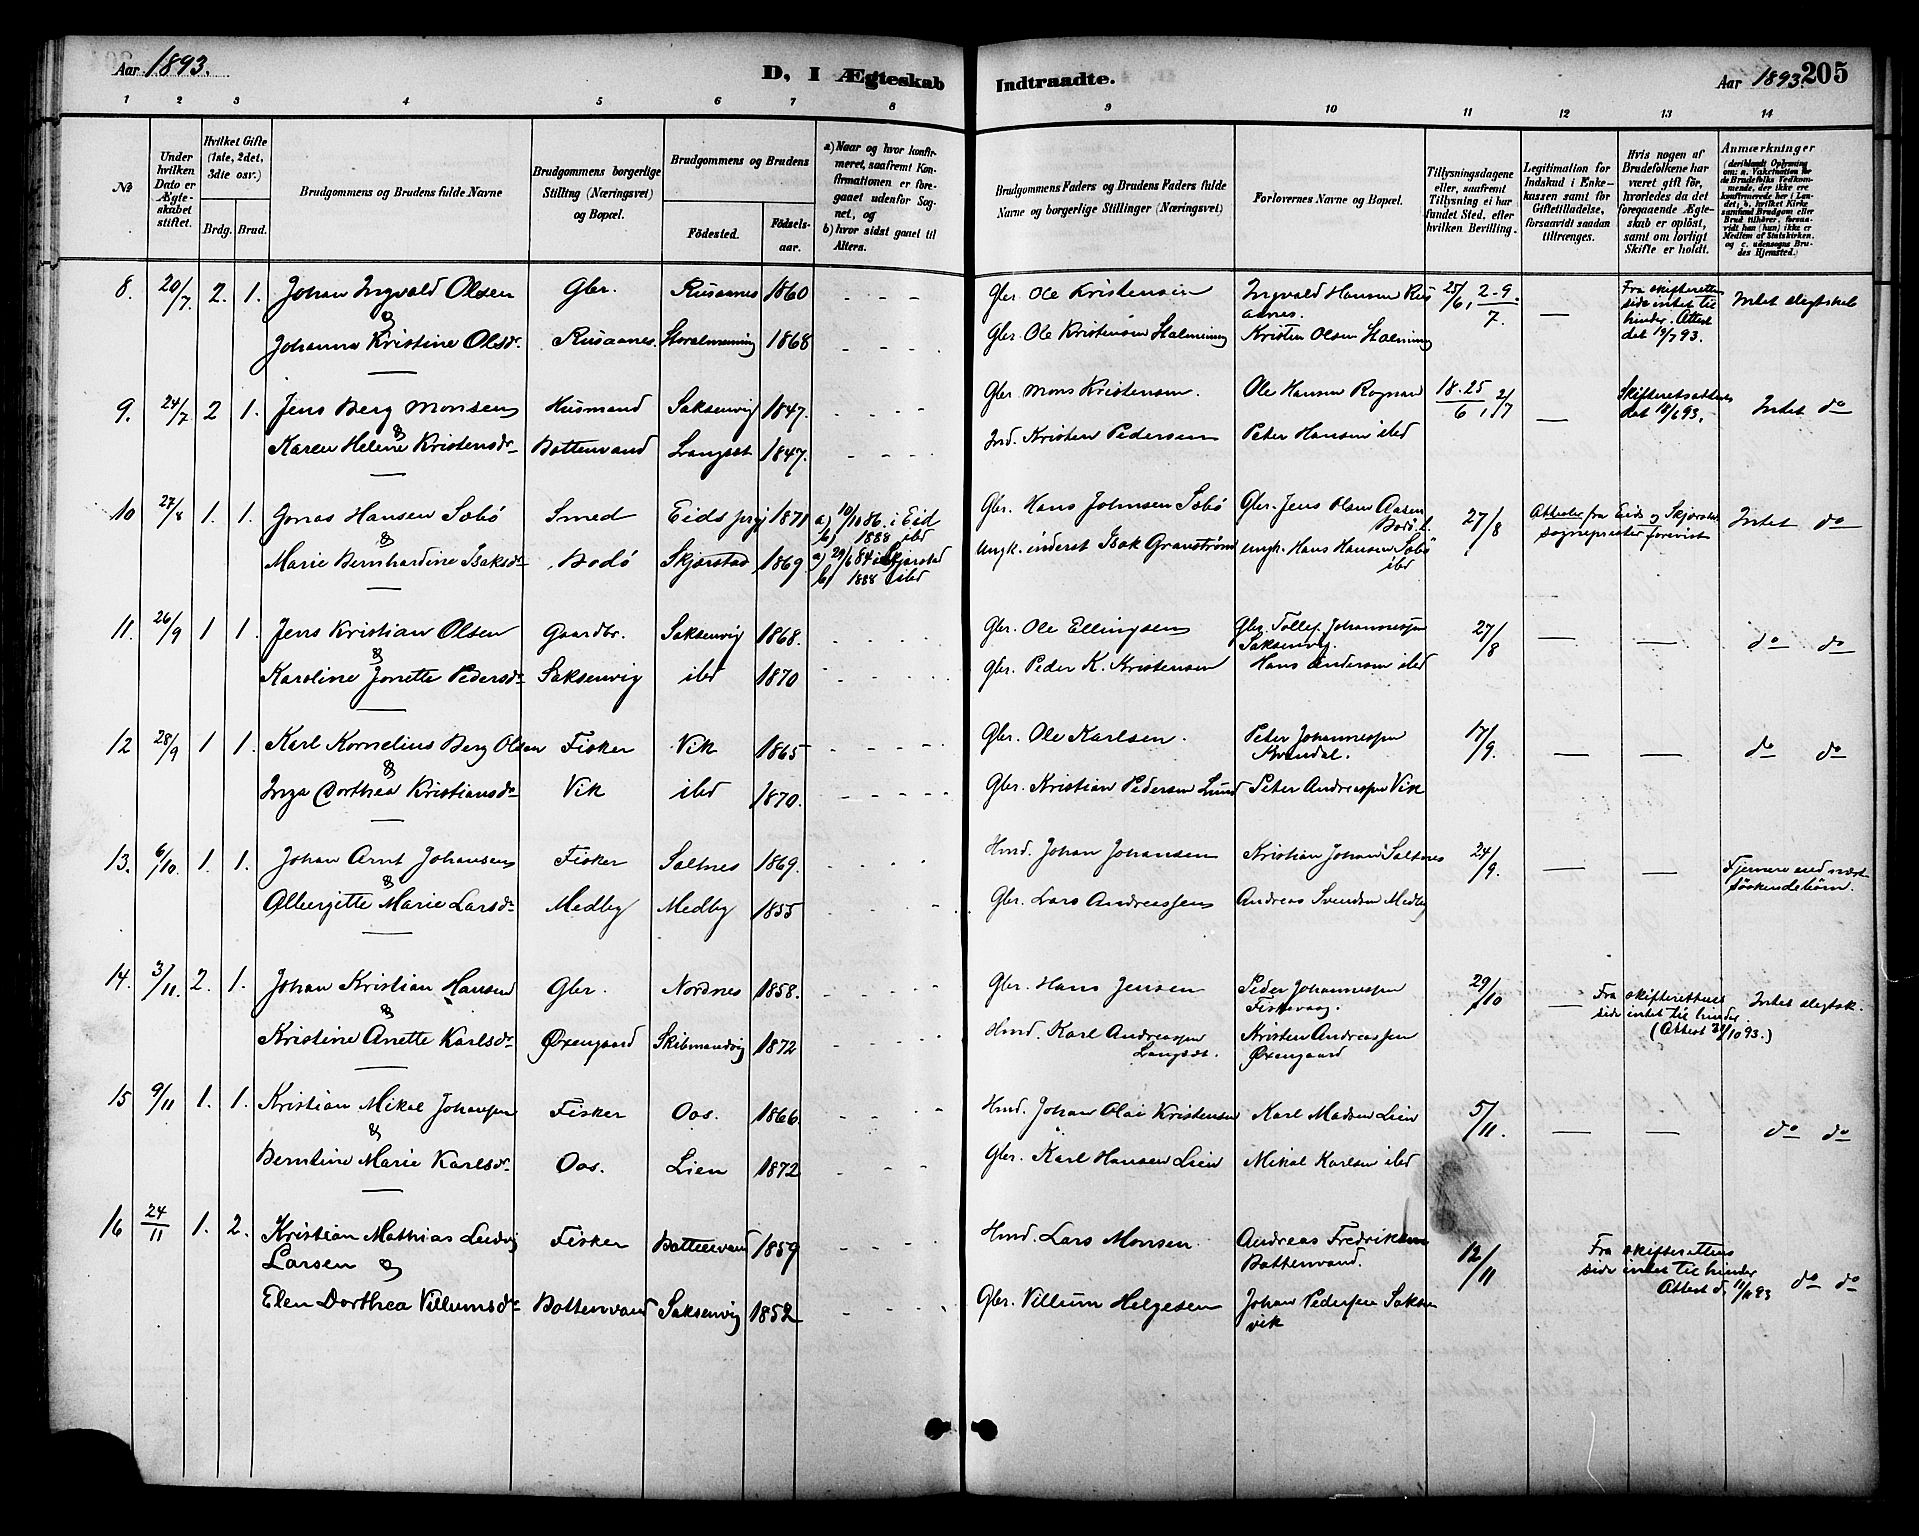 Aar 1893.
D, I Ægteskab
Indtraadte.
Aar 1893. 205
1 2 3 4 5 6 7 8 9 10 11 12 13 14
No
Under hvilken Dato er Ægteskabet stiftet.
Hvilket Gifte (1ste, 2det, 3die osv.)
Brdg. Brud.
Brudgommens og Brudens fulde Navne
Brudgommens borgerlige Stilling (Næringsvei) og Bopæl.
Brudgommens og Brudens
Födested.
Födselsaar.
a) Naar og hvor konfirmeret, saafremt Konfirmationen er foregaaet udenfor Sognet, og
b) hvor sidst gaaet til Alters.
Brudgommens Faders og Brudens Faders fulde Navne og borgerlige Stillinger (Næringsvei)
Forlovernes Navne og Bopæl.
Tillysningsdagene eller, saafremt Tillysning ei har fundet Sted, efter hvilken Bevilling.
Legitimation for Indskud i Enkekassen samt for Giftetilladelse, forsaavidt saadan tiltrænges.
Hvis nogen af Brudefolkene har været gift för, hvorledes da det foregaaende Ægteskab er oplöst, samt om lovligt Skifte er holdt.
Anmærkninger
8. 20/7. 2. 1. Johan Ingvald Olsen Gbr. Rusaanes 1860 - - - Gbr. Ole Kristensen Ingvald Hansen Rusaanes. 25/6, 2-9/7. — Fra skifterettens side intet til hinder. Attest det 19/7 93. Intet slegtskab
& Johanna Kristine Olsdr. Rusaanes. Storalmenning 1868 - - - Gbr. Ole Kristensen Stalmening Kristen Olsen Stalmening
9. 24/7 2 1. Jens Berg Monsen Husmand Saksenvig 1847. - - - Gbr. Mons Kristensen. Ole Hansen Rognan 18-25/6, 2/7 — Skifteretsattest det 18/6 93. Intet do
& Karen Helene Kristensdr Bottenvand Langset 1847. - - - Ind. Kristen Pedersen Peter Hansen ibd
10 27/8 1. 1. Jonas Hansen Sobö Smed Eids prgj 1871 a) 10/10 86. i Eid b) 1888 ibd Gbr. Hans Johnsen Sobö Gbr. Jens Olsen Aasen Bodö l. 27/8 Attester fra Eids og Skjerstad sogneprester forevist Intet do
& Marie Bernhardine Isaksdr Bodö Skjerstad 1869. a) 29/6 84 i Skjerstad b) 1888 ibd ungk. inderst Isak Granström ungk. Hans Hansen Sobö ibd
11. 26/9 1 1. Jens Kristian Olsen Gaardbr. Saksenvig 1868. - - - Gbr. Ole Ellingsen Gbr. Tollef Johannessen Saksenvig. 27/8 — — do do
& Karoline Jonette Pedersdr Saksenvig ibd 1870 - - - Gbr. Peder K. Kristensen Hans Andersen ibd
12 28/9 1 1. Karl Kornelius Berg Olsen Fisker Vik 1865 - - - Gbr. Ole Karlsen. Peter Johannessen 17/9. — — do do
& Inga Dorthea Kristiansdr Vik ibd 1870. - - - Gbr. Kristian Pedersen Lund Peter Andreassen Vik
13. 6/10. 1. 1. Johan Arnt Johansen Fisker Saltnes 1869. - - - Hmd. Johan Johansen Kristian Johans Saltnes 24/9. — — Fjernere end næstsöskendebörn.
& Albergitte Marie Larsdr Medby Medby 1855 - - - Gbr. Lars Andreassen Andreas Svendsen Medby
14. 3/11. 2. 1. Johan Kristian Hansen Gbr. Nordnes 1858. - - - Gbr. Hans Jensen Peder Johannessen Fiskevaag. 29/10 — Fra skifterettens side intet til hinder. (Attest 21/10 93.) Intet slegtsk.
& Kristine Anette Karlsdr. Öxengaard Skibmandvig 1872 - - - Hmd. Karl Andreassen Langset. Kristen Andreassen Öxengaard
15 9/11 1. 1. Kristian Mikal Johansen Fisker Oos. 1866. - - - Hmd. Johan Olai Kristensen Karl Madsen Lien 5/11. — — do do
& Berntine Marie Karlsdr. Oos. Lien 1872 - - - Gbr. Karl Hansen Lien Mikal Karlsen ibd
16 24/11 1. 2. Kristian Mathias Ludvig Larsen & Fisker Bottenvand 1859 - - - Hmd. Lars Monsen. Andreas Fredriksen Bottenvand. 12/11 Fra skifterettens side intet til hinder Attest d. 11/11 93 do do
Elen Dorthea Villumsdr Bottenvand Saksenvig 1852 - - - Gbr. Villum Helgesen Johan Pedersen Saksenvik